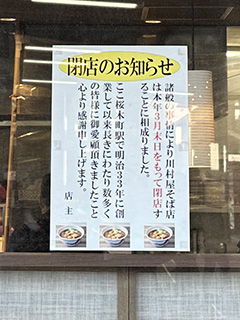 閉店のお知らせ
諸般の事情により川村屋そば店
は本年３月末日をもって閉店す
ることに相成りました。
ここ桜木町駅で明治３３年に創
業して以来長きにわたり数多く
の皆様に御愛顧頂きましたこと
心より感謝申し上げます。
店主